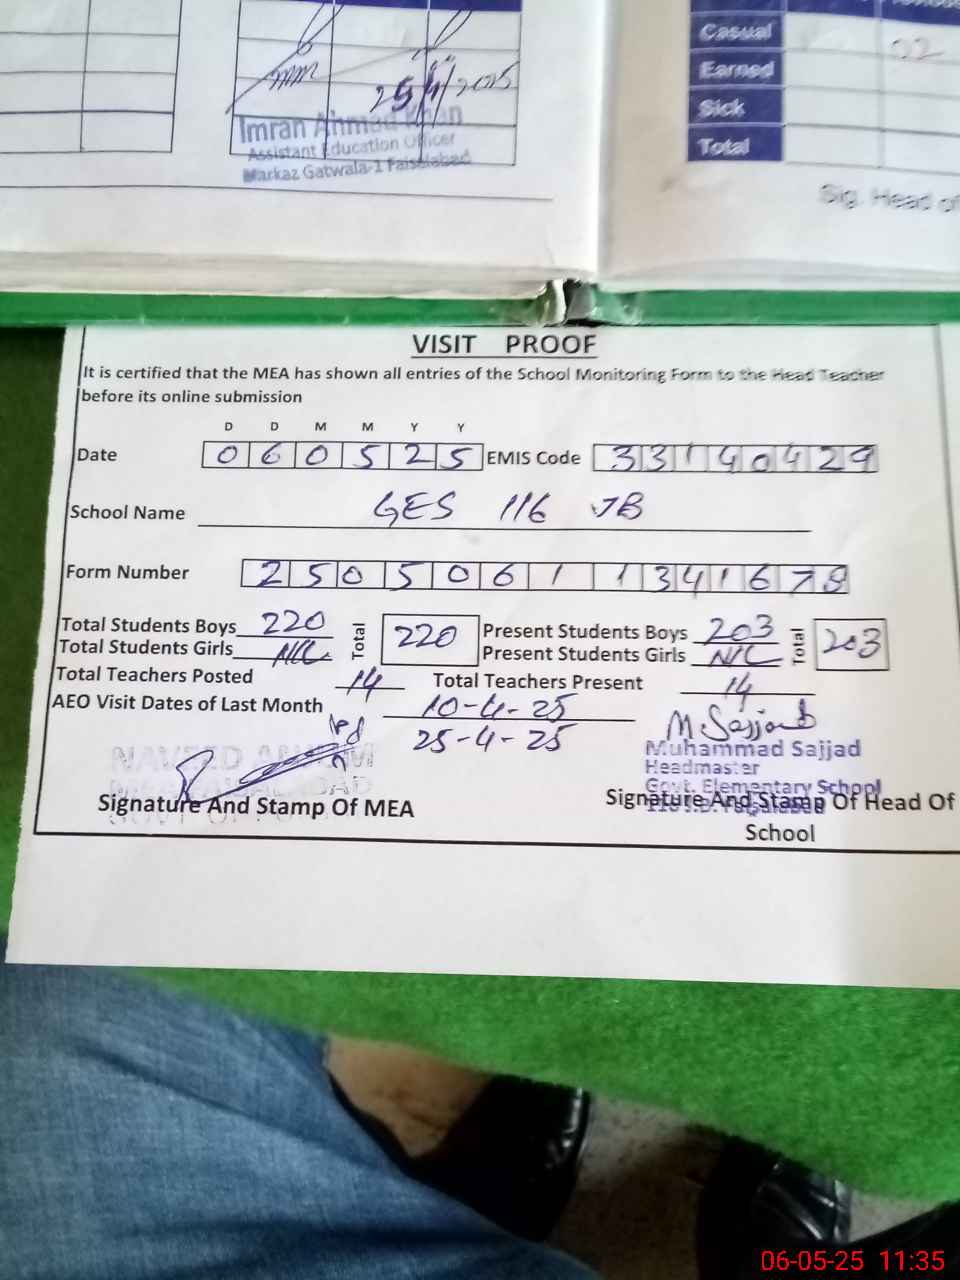 25/4/2025
Imran Ahmad Khan
Assistant Education Officer
Markaz Gatwala-1 Faisalabad
Casual 02
Earned
Sick
Total
Sig. Head of
VISIT PROOF
It is certified that the MEA has shown all entries of the School Monitoring Form to the Head Teacher
before its online submission
D D M M Y Y
Date 0 6 0 5 2 5 EMIS Code 3 3 1 4 0 4 2 9
School Name GES 116 JB
Form Number 2 5 0 5 0 6 1 1 3 4 1 6 7 8
Total Students Boys 220 Total 220 Present Students Boys 203 Total 203
Total Students Girls Nil Present Students Girls Nil
Total Teachers Posted 14 Total Teachers Present 14
AEO Visit Dates of Last Month 10-4-25
25-4-25
M. Sajjad
Muhammad Sajjad
Headmaster
Govt. Elementary School
Signature And Stamp Of MEA Signature And Stamp Of Head Of
School
06-05-25 11:35